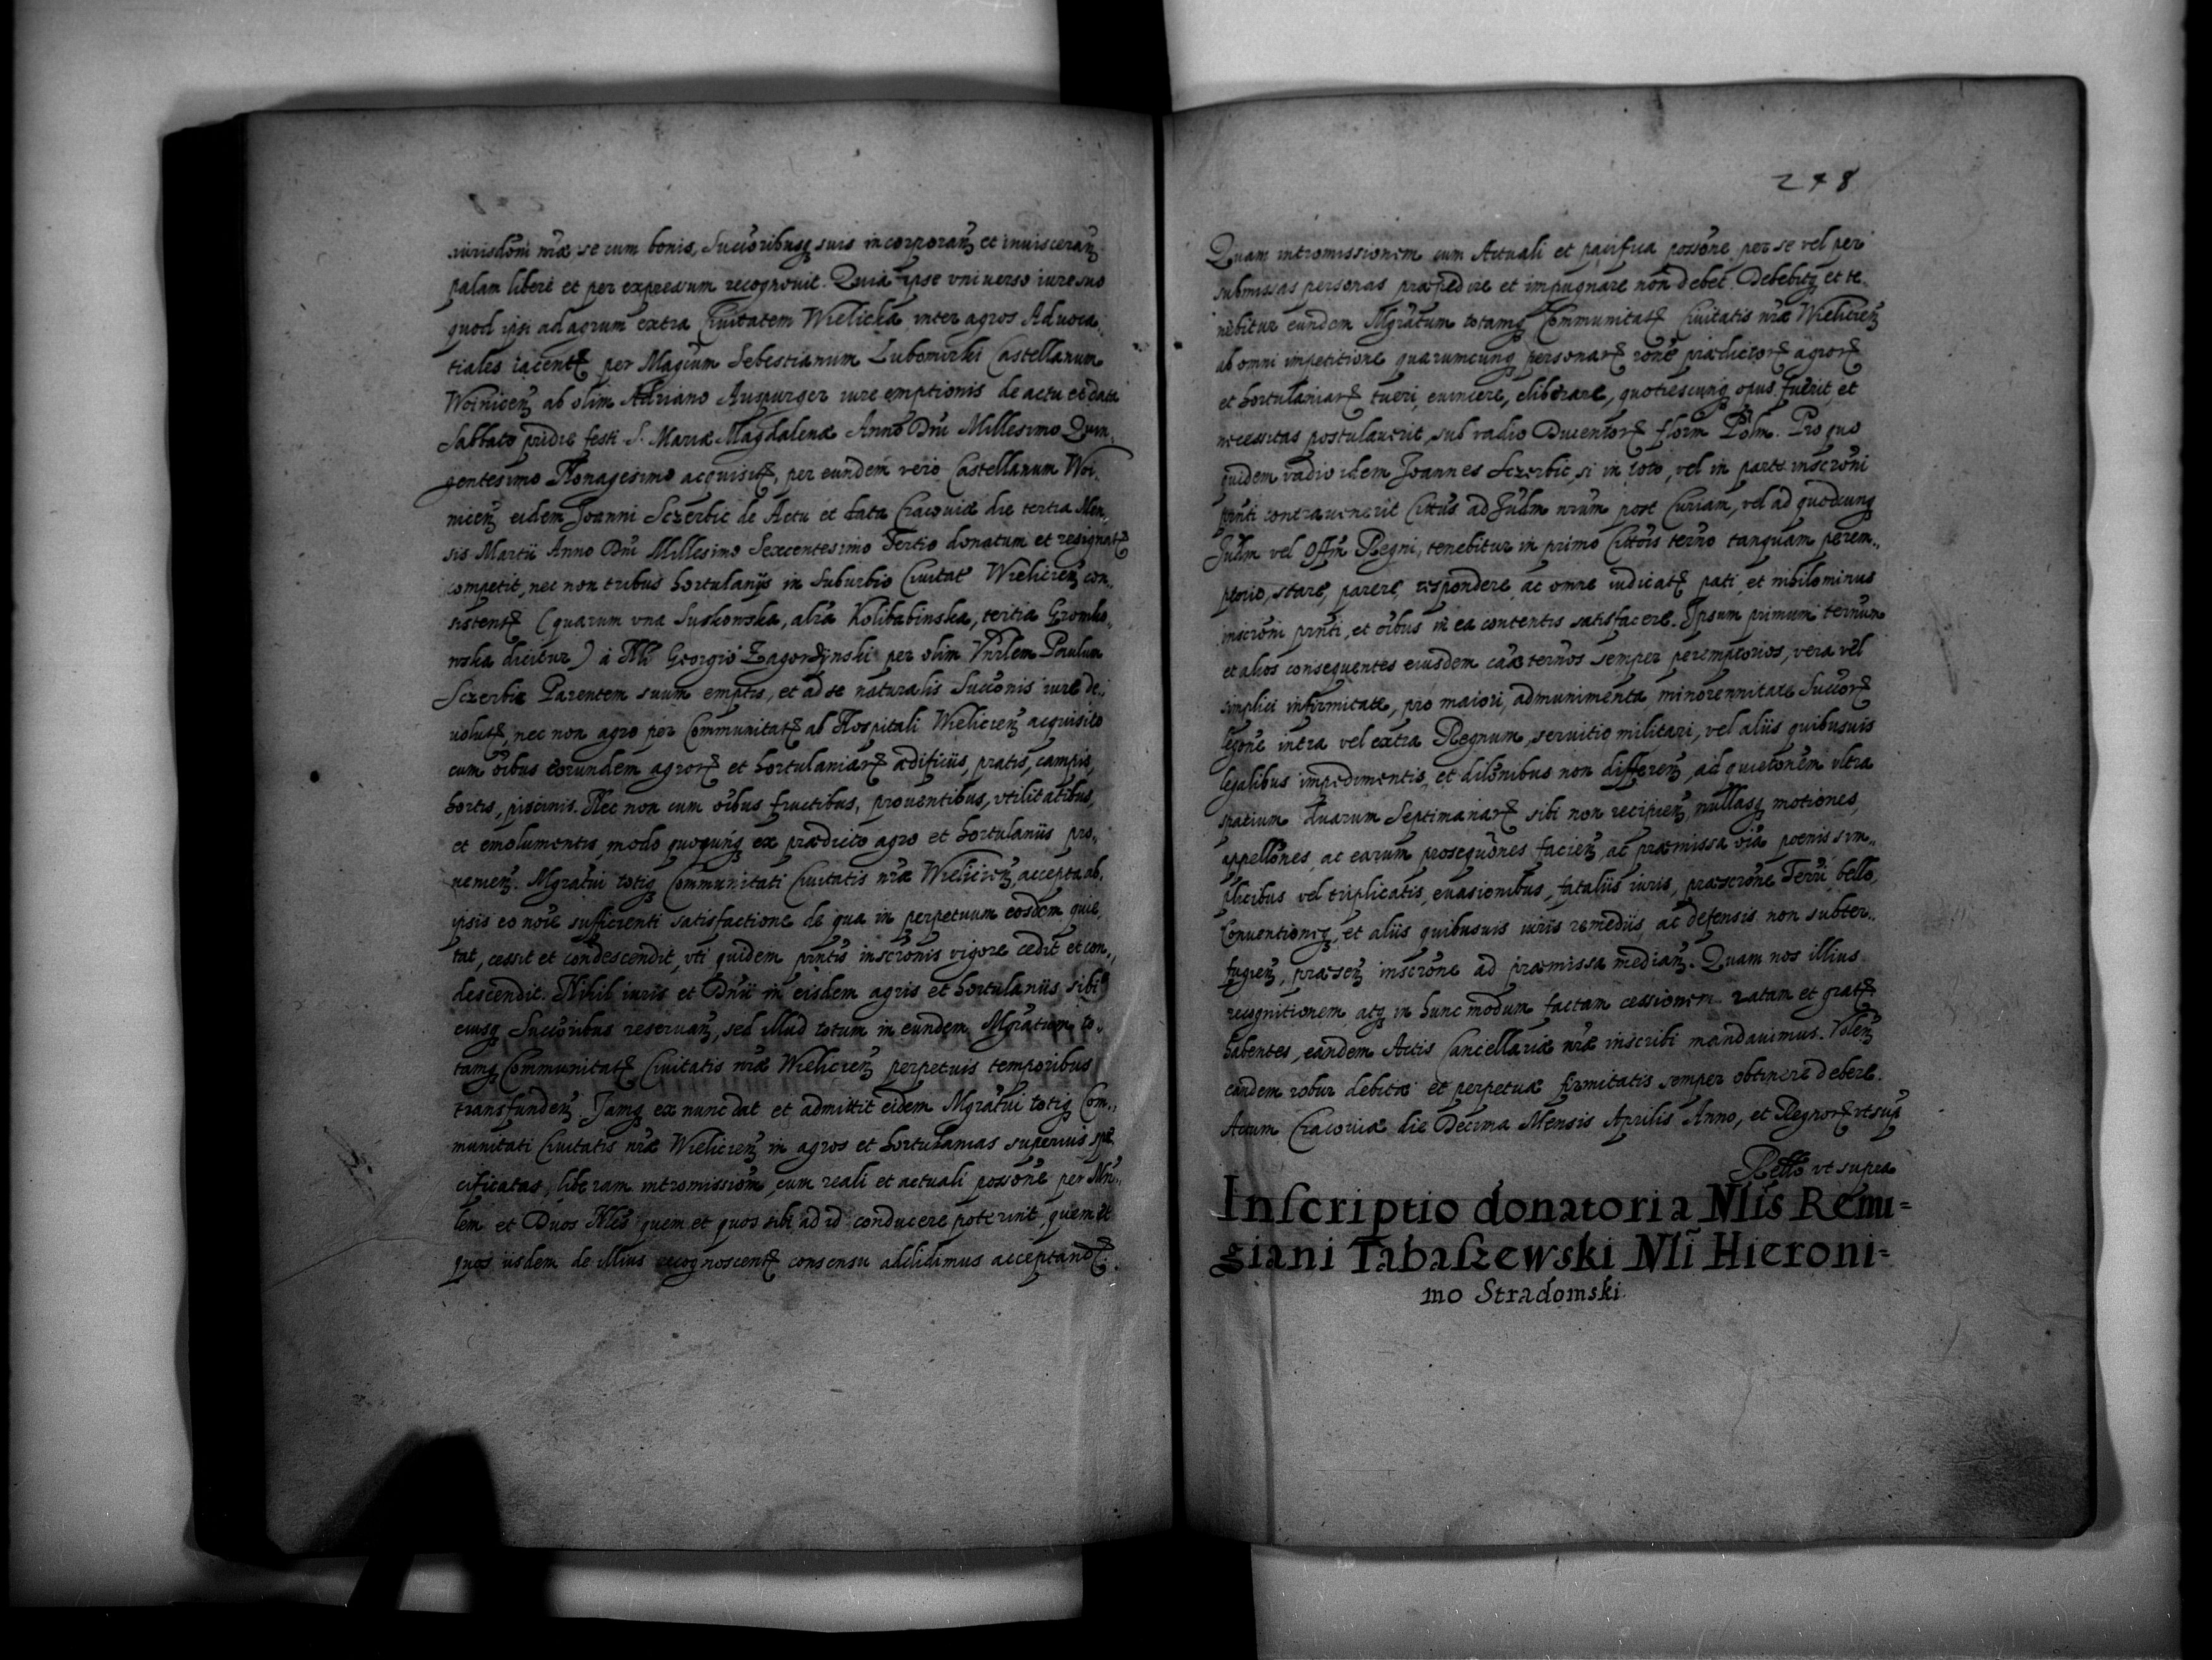 iurisdõni nr̃æ se cum bonis, Succoribusq₃ suis incorporan̄ et inuisceran̄
palam libere et per expressum recognouit. Quia ipse vniuerso iure suo
quod ipsi ad agrum extra Ciuitatem Wielicka inter agros Aduoca-
tiales iacentẽ per Magcum Sebestianum Lubomirski Castellanum
Woinicen̄ ab olim Adriano Auspurger iure emptionis de actu et data
Sabbato pridie festi S. Mariæ Magdalenæ Anno Dñi Millesimo Quin-
gentesimo Nonagesimo acquisitẽ, per eundem vero Castellanum Woi-
nicen̄ eidem Joanni Sczerbic de Actu et data Cracouiæ die tertia Men-
sis Martii Anno Dñi Millesimo Sexcentesimo Tertio donatum et resignatẽ
competit, nec non tribus hortulanijs in Suburbio Ciuitat Wielicien̄ con-
sistentẽ (quarum vna Suskowska, alia Kolibabinska, tertia Gromko-
wska dicitur) à Nli Georgio Zagorzynski per olim Vnrlem Paulum
Sczerbic Parentem suum emptis, et ad se naturalis Succonis iure de-
uolutẽ, nec non agro per Communitatẽ ab Hospitali Wielicien̄ acquisito
cum oĩbus eorundem agrorẽ et hortulaniarẽ ædificiis, pratis, campis,
hortis, piscinis. Nec non cum oĩbus fructibus, prouentibus, vtilitatibus,
et emolumentis, modo quoqunq₃ ex prædicto agro et hortulaniis pro-
uenien̄. Mgratui totiq₃ Communitati Ciuitatis nr̃æ Wielicien̄, accepta ab
ipsis eo noĩe sufficienti satisfactione de qua in perpetuum eosdem quie-
tat, cessit et condescendit, vti quidem pr̃ntis inscronis vigore cedit et con-
descendit. Nihil iuris et Dñii in eisdem agris et hortulaniis sibi
eiusq₃ Succoribus reseruan̄, sed illud totum in eundem Mgratum to-
tamq₃ Communitatẽ Ciuitatis nr̃æ Wielicien̄ perpetuis temporibus
transfunden̄. Jamq₃ ex nunc dat et admittit eidem Mgratui totiq₃ Com-
munitati Ciuitatis nr̃æ Wielicien̄ in agros et hortulanias superius spe-
cificatas, liberam intromissiom̃, cum reali et actuali possõne per Min-
lem et Duos Nles quem et quos sibi ad id conducere poterint, quem et
quos iisdem de illius recognoscentẽ consensu addidimus acceptandẽ.
248
Quam intromissionem cum Actuali et pacifica possõne per se vel per
submissas personas præpedire et impugnare non debet. Debebitq₃ et te-
nebitur eundem Mgratum totamq₃ Communitatẽ Ciuitatis nr̃æ Wielicien̄
ab omni impetitione quarumcunq₃ personarẽ rõne prædictorẽ agrorẽ
et hortulaniarẽ tueri, euincere, eliberare, quotiescunq₃ opus fuerit, et
necessitas postulauerit, sub vadio Ducentorẽ florm̃ Polm̃. Pro quo
quidem vadio idem Joannes Sczerbic, si in toto, vel in parte inscrõni
pr̃nti contrauenerit Cittũs ad Judm̃ nrum post Curiam, vel ad quodcunq₃
Judm̃ vel Offm̃ Regni, tenebitur in primo Cittõis terno tanquam perem-
ptorio, stare, parere, respondere ac omne iudicatẽ pati, et nihilominus
inscrõni pr̃nti, et oĩbus in ea contentis satisfacere. Ipsum primum ternum
et alios consequentes eiusdem caæ ternos semper peremptorios, vera vel
simplici infirmitate, pro maiori, ad munimenta minorennitate Succorẽ
legõne intra vel extra Regnum, seruitio militari, vel aliis quibusuis
legalibus impedimentis, et dilõnibus non differen̄, ad quietõnem vltra
spatium duarum Septimanarẽ sibi non recipien̄, nullasq₃ motiones,
appellõnes, ac earum prosequõnes facien̄, ac præmissa oĩa poenis sim-
plicibus vel triplicatis, euasionibus, fataliis iuris, præscrõne Terrũ, bello,
Conuentioneq₃, et aliis quibusuis iuris remediis, ac defensis non subter-
fugien̄, præsen̄ inscrõne ad præmissa median̄. Quam nos illius
recognitionem atq₃ in hunc modum factam cessionem ratam et gratẽ
habentes, eandem Actis Cancellariæ nr̃æ inscribi mandauimus. Volen̄
eandem robur debitæ et perpetuæ firmitatis semper obtinere debere.
Actum Cracouiæ die Decima Mensis Aprilis Anno, et Regnorẽ vt sup
Rello vt supra
Inscriptio donatoria Nlis Remi=
giani Tabaszewski Nli Hieroni=
mo Stradomski.